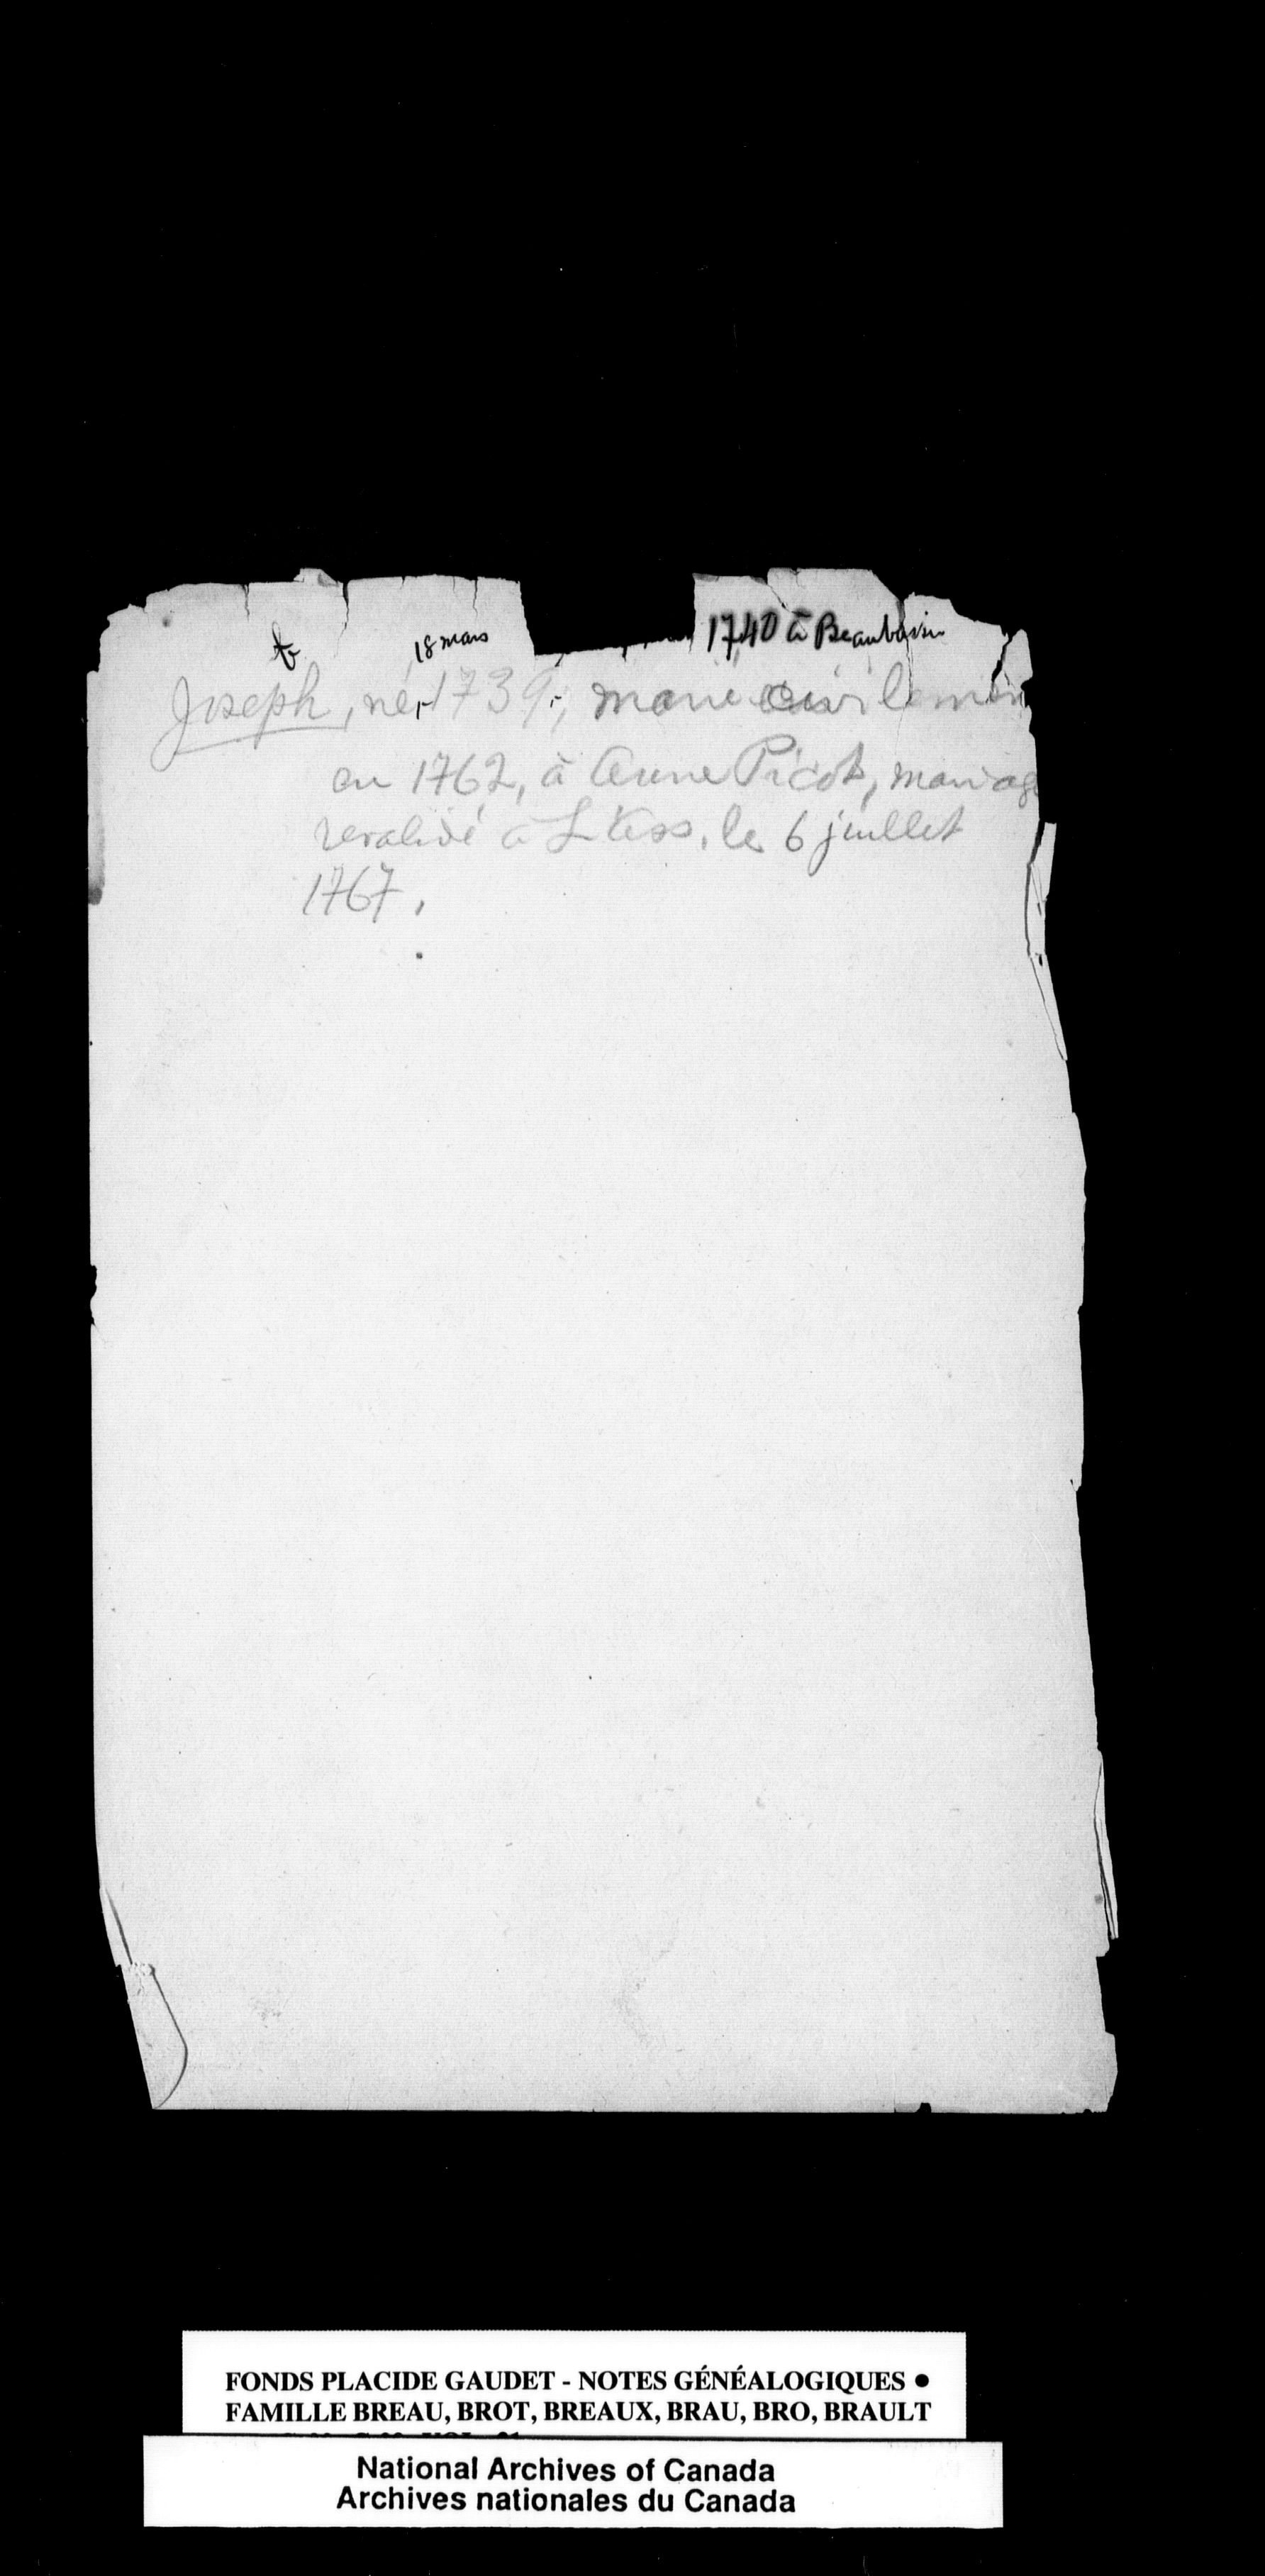 18 mars 1740 à Beaubassin
Joseph, né, 1739, marié civilemen
en 1762, à Anne Picot, mariage
revalidé à L'Ass. le 6 juillet
1767.
FONDS PLACIDE GAUDET - NOTES GÉNÉALOGIQUES ●
FAMILLE BREAU, BROT, BREAUX, BRAU, BRO, BRAULT
National Archives of Canada
Archives nationales du Canada